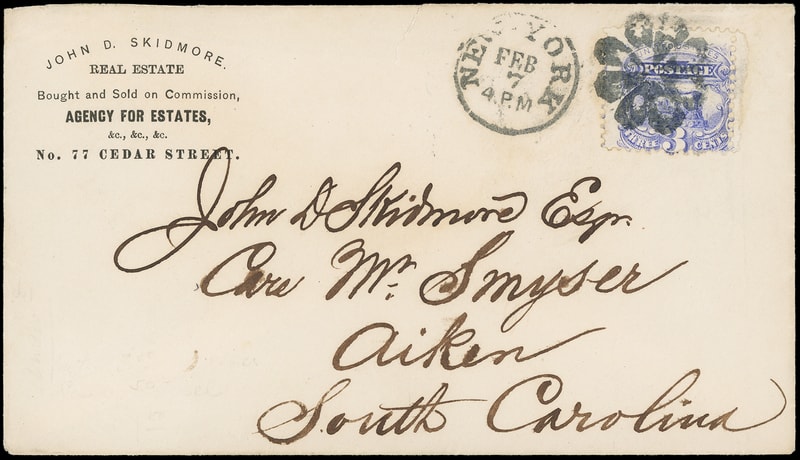 JOHN D. SKIDMORE.
REAL ESTATE
Bought and Sold on Commission,
AGENCY FOR ESTATES,
&c., &c., &c.
No. 77 CEDAR STREET.
NEW YORK
FEB
7
4 P.M
POSTAGE
THREE 3 CENTS
John D Skidmore Esqr.
Care Mr. Smyser
Aiken
South Carolina